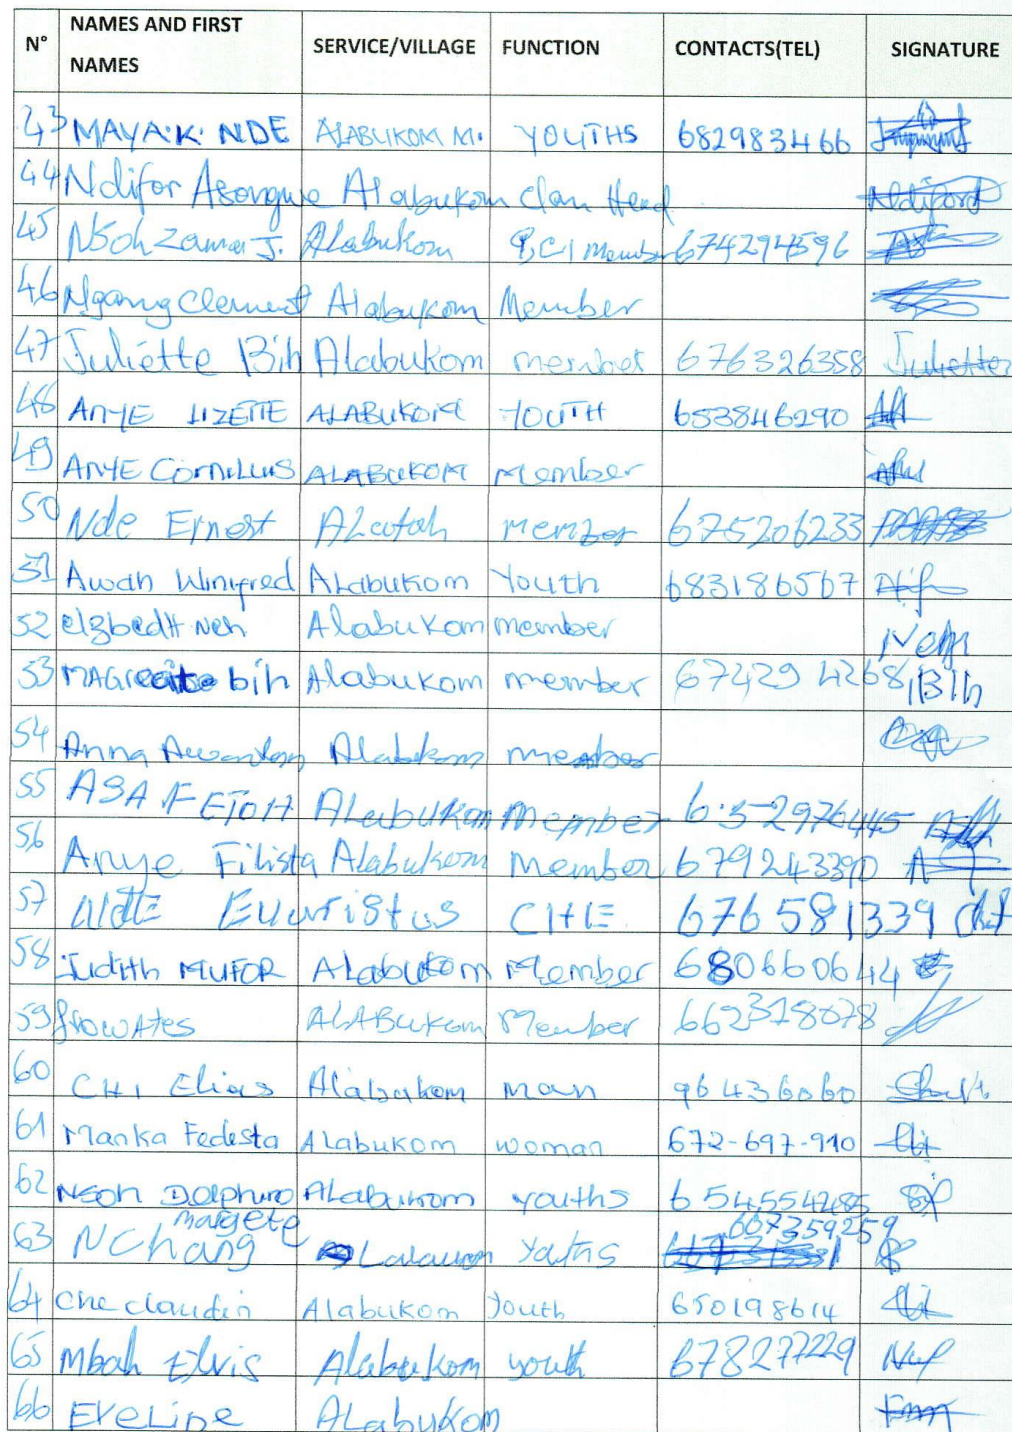 N° NAMES AND FIRST NAMES SERVICE/VILLAGE FUNCTION CONTACTS(TEL) SIGNATURE
43 MAYA.K. NDE ALABUKOM M. YOUTHS 682983466
44 Ndifor Asongwe Alabukom Clan Head Ndiford
45 Nsoh Zama J. Alabukom Member 674294596
46 Ngang Clement Alabukom Member
47 Juliette Bih Alabukom member 676326358 Juliette
48 ANYE LIZETTE ALABUKOM YOUTH 653846290
49 ANYE Cornilius ALABUKOM Member
50 Nde Ernest ALatah member 675206233
51 Awah Winifred Alabukom Youth 683186567
52 elzbedtt Neh Alabukom member Neh
53 MAGreate bih Alabukom member 674294268 Bih
54 Anna Alabukom member
55 ASA FETOH ALabukom Member
56 Anye Filista Alabukom Member 679243390
57 NdE Evaristus 676581339
58 Judith MUFOR ALabukom Member 680660644
59 ALABukom Member 662318078
60 CHI Elias Alabukom man 96436060
61 Manka Fedesta Alabukom woman 672-697-910
62 NSOh Dolphino Alabukom youths 654554285
63 NChang Margete 667359259
64 Che claudin Alabukom Youth 650198614
65 Mbah Elvis Alabukom youth 678277229
66 EveLine ALabukom